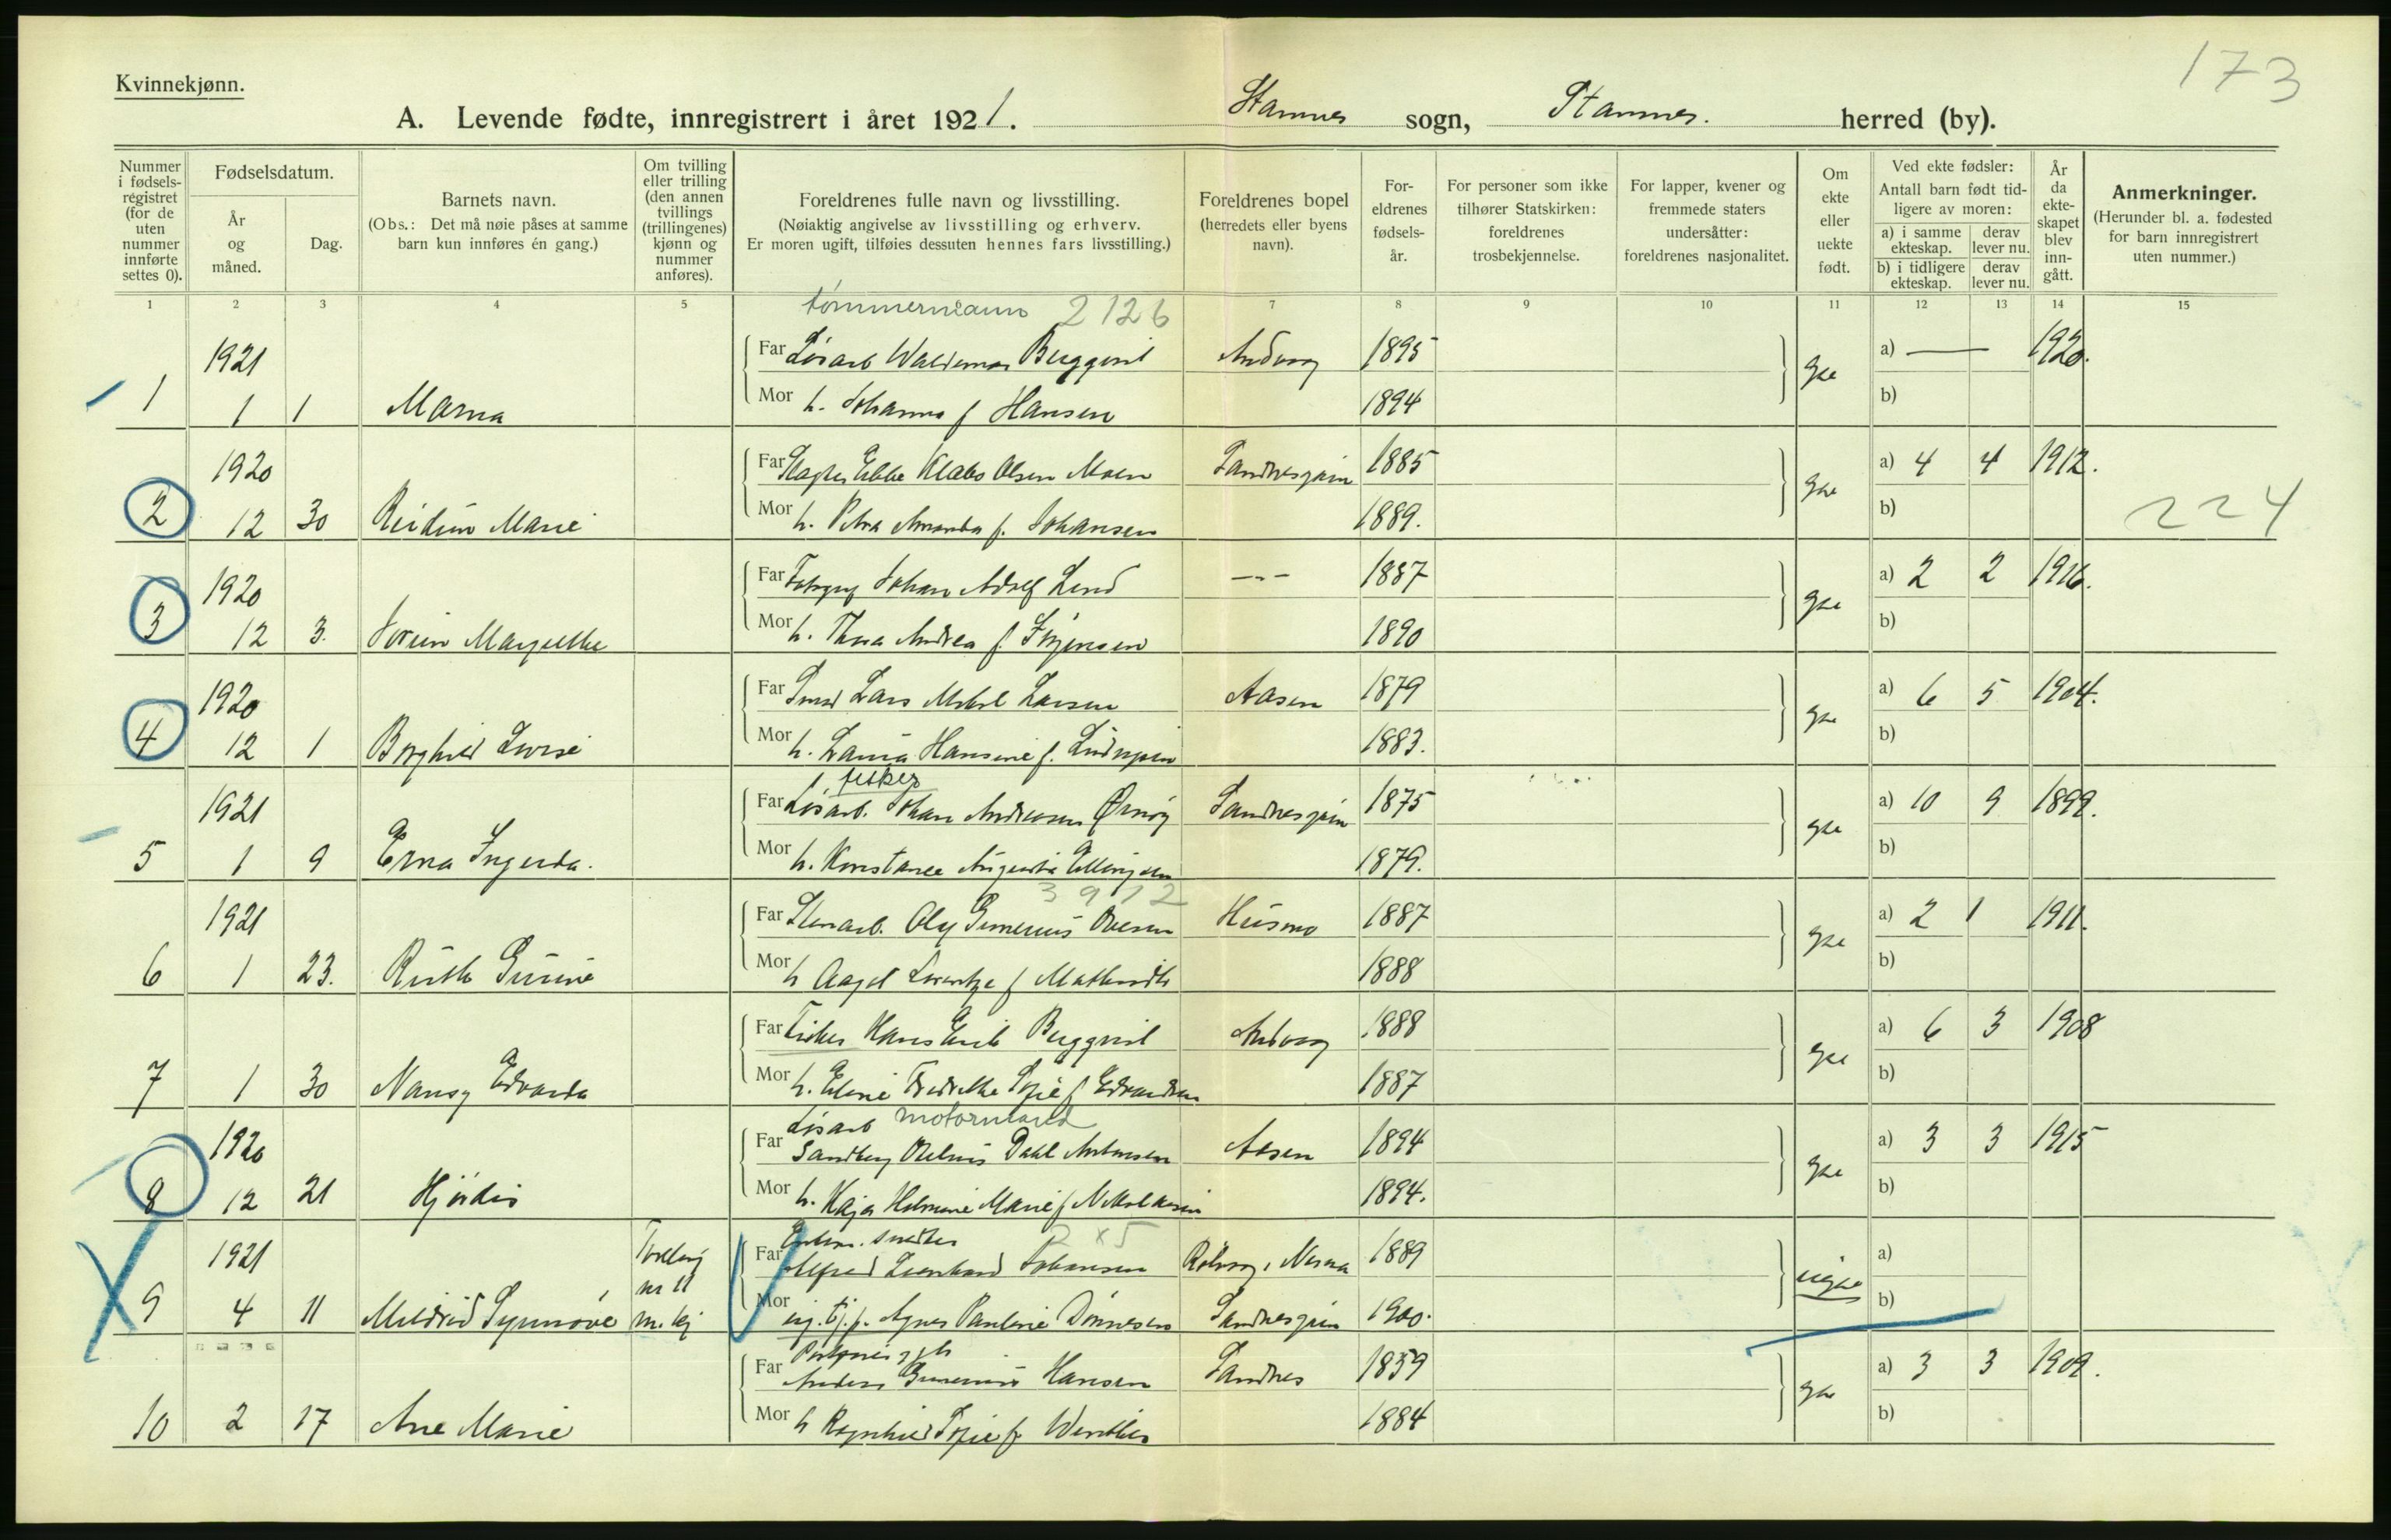 173
Kvinnekjønn.
A. Levende fødte, innregistrert i året 1921. Stamnes sogn, Stamnes. herred (by).
Nummer i fødsels-registret (for de uten nummer innførte settes 0).
Fødselsdatum.
År og måned.
Dag.
Barnets navn.
(Obs.: Det må nøie påses at samme barn kun innføres én gang.)
Om tvilling eller trilling (den annen tvillings (trillingenes) kjønn og nummer anføres).
Foreldrenes fulle navn og livsstilling.
(Nøiaktig angivelse av livsstilling og erhverv.
Er moren ugift, tilføies dessuten hennes fars livsstilling.)
Foreldrenes bopel (herredets eller byens navn).
For-eldrenes fødsels-år.
For personer som ikke tilhører Statskirken: foreldrenes trosbekjennelse.
For lapper, kvener og fremmede staters undersåtter: foreldrenes nasjonalitet.
Om ekte eller uekte født.
Ved ekte fødsler:
Antall barn født tid-ligere av moren:
a) i samme ekteskap. derav lever nu.
b) i tidligere ekteskap. derav lever nu.
År da ekte-skapet blev inn-gått.
Anmerkninger.
(Herunder bl. a. fødested for barn innregistrert uten nummer.)
1 2 3 4 5 7 8 9 10 11 12 13 14 15
tømmermann 2126
1921 Far Løsarb Waldemar Bergqvist 1895 a) — 1920.
1 1 1 Marna Mor h. Johanna f Hansen 1894 b)
1920 Far Ebbe Klabo Olsen Moen Sandnessjøen 1885 a) 4 4 1912.
2 12 30 Reidun Marie Mor h. Petra Amanda f. Johansen 1889. b)
224
1920 Far Johan Adolf Lund -"- 1887 a) 2 2 1916.
3 12 3. Margrethe Mor h. Thea Andrea f. Jørgensen 1890 b)
1920 Far Smed Lars Mikal Larsen Aasen 1879 a) 6 5 1904.
4 12 1 Borghild Lovise Mor h. Hansine f. 1883. b)
fisker
1921 Far Løsarb. Johan Andreasen Ørnøy Sandnessjøen 1875 a) 10 9 1899.
5 1 9 Erna Ingerda. Mor h. Konstance Augusta Ellingsen 1879. b)
3912
1921 Far Stenarb. Olaf Olsen Husmo 1887 a) 2 1 1911.
6 1 23. Ruth Gunnie Mor h Aagot Lorentze f 1888 b)
Far Fisker Hans Erik Bergqvist 1888 a) 6 3 1908
7 1 30 Nansy Edvarda Mor h. Eline Fredrikke Sofie f Edvardsen 1887 b)
Løsarb motormand
1920 Far Sandberg Dahl Antonsen Aasen 1894 a) 3 3 1915
8 12 21 Hjørdis Mor h. Kaja Helmine Marie f Nikolaisen 1894. b)
2 x 5
1921 Tvilling nr 11 m. kj Far Alfred Leonhard Johansen Nesna 1889 a)
9 4 11 Mildrid Synnøve Mor ug. tj.p. Agnes Pauline Dønnesen Sandnessjøen 1900. b)
Far Anders Hansen Sandnes 1859 a) 3 3 1909.
10 2 17 Ane Marie Mor h Ragnhild Sofie f 1884 b)